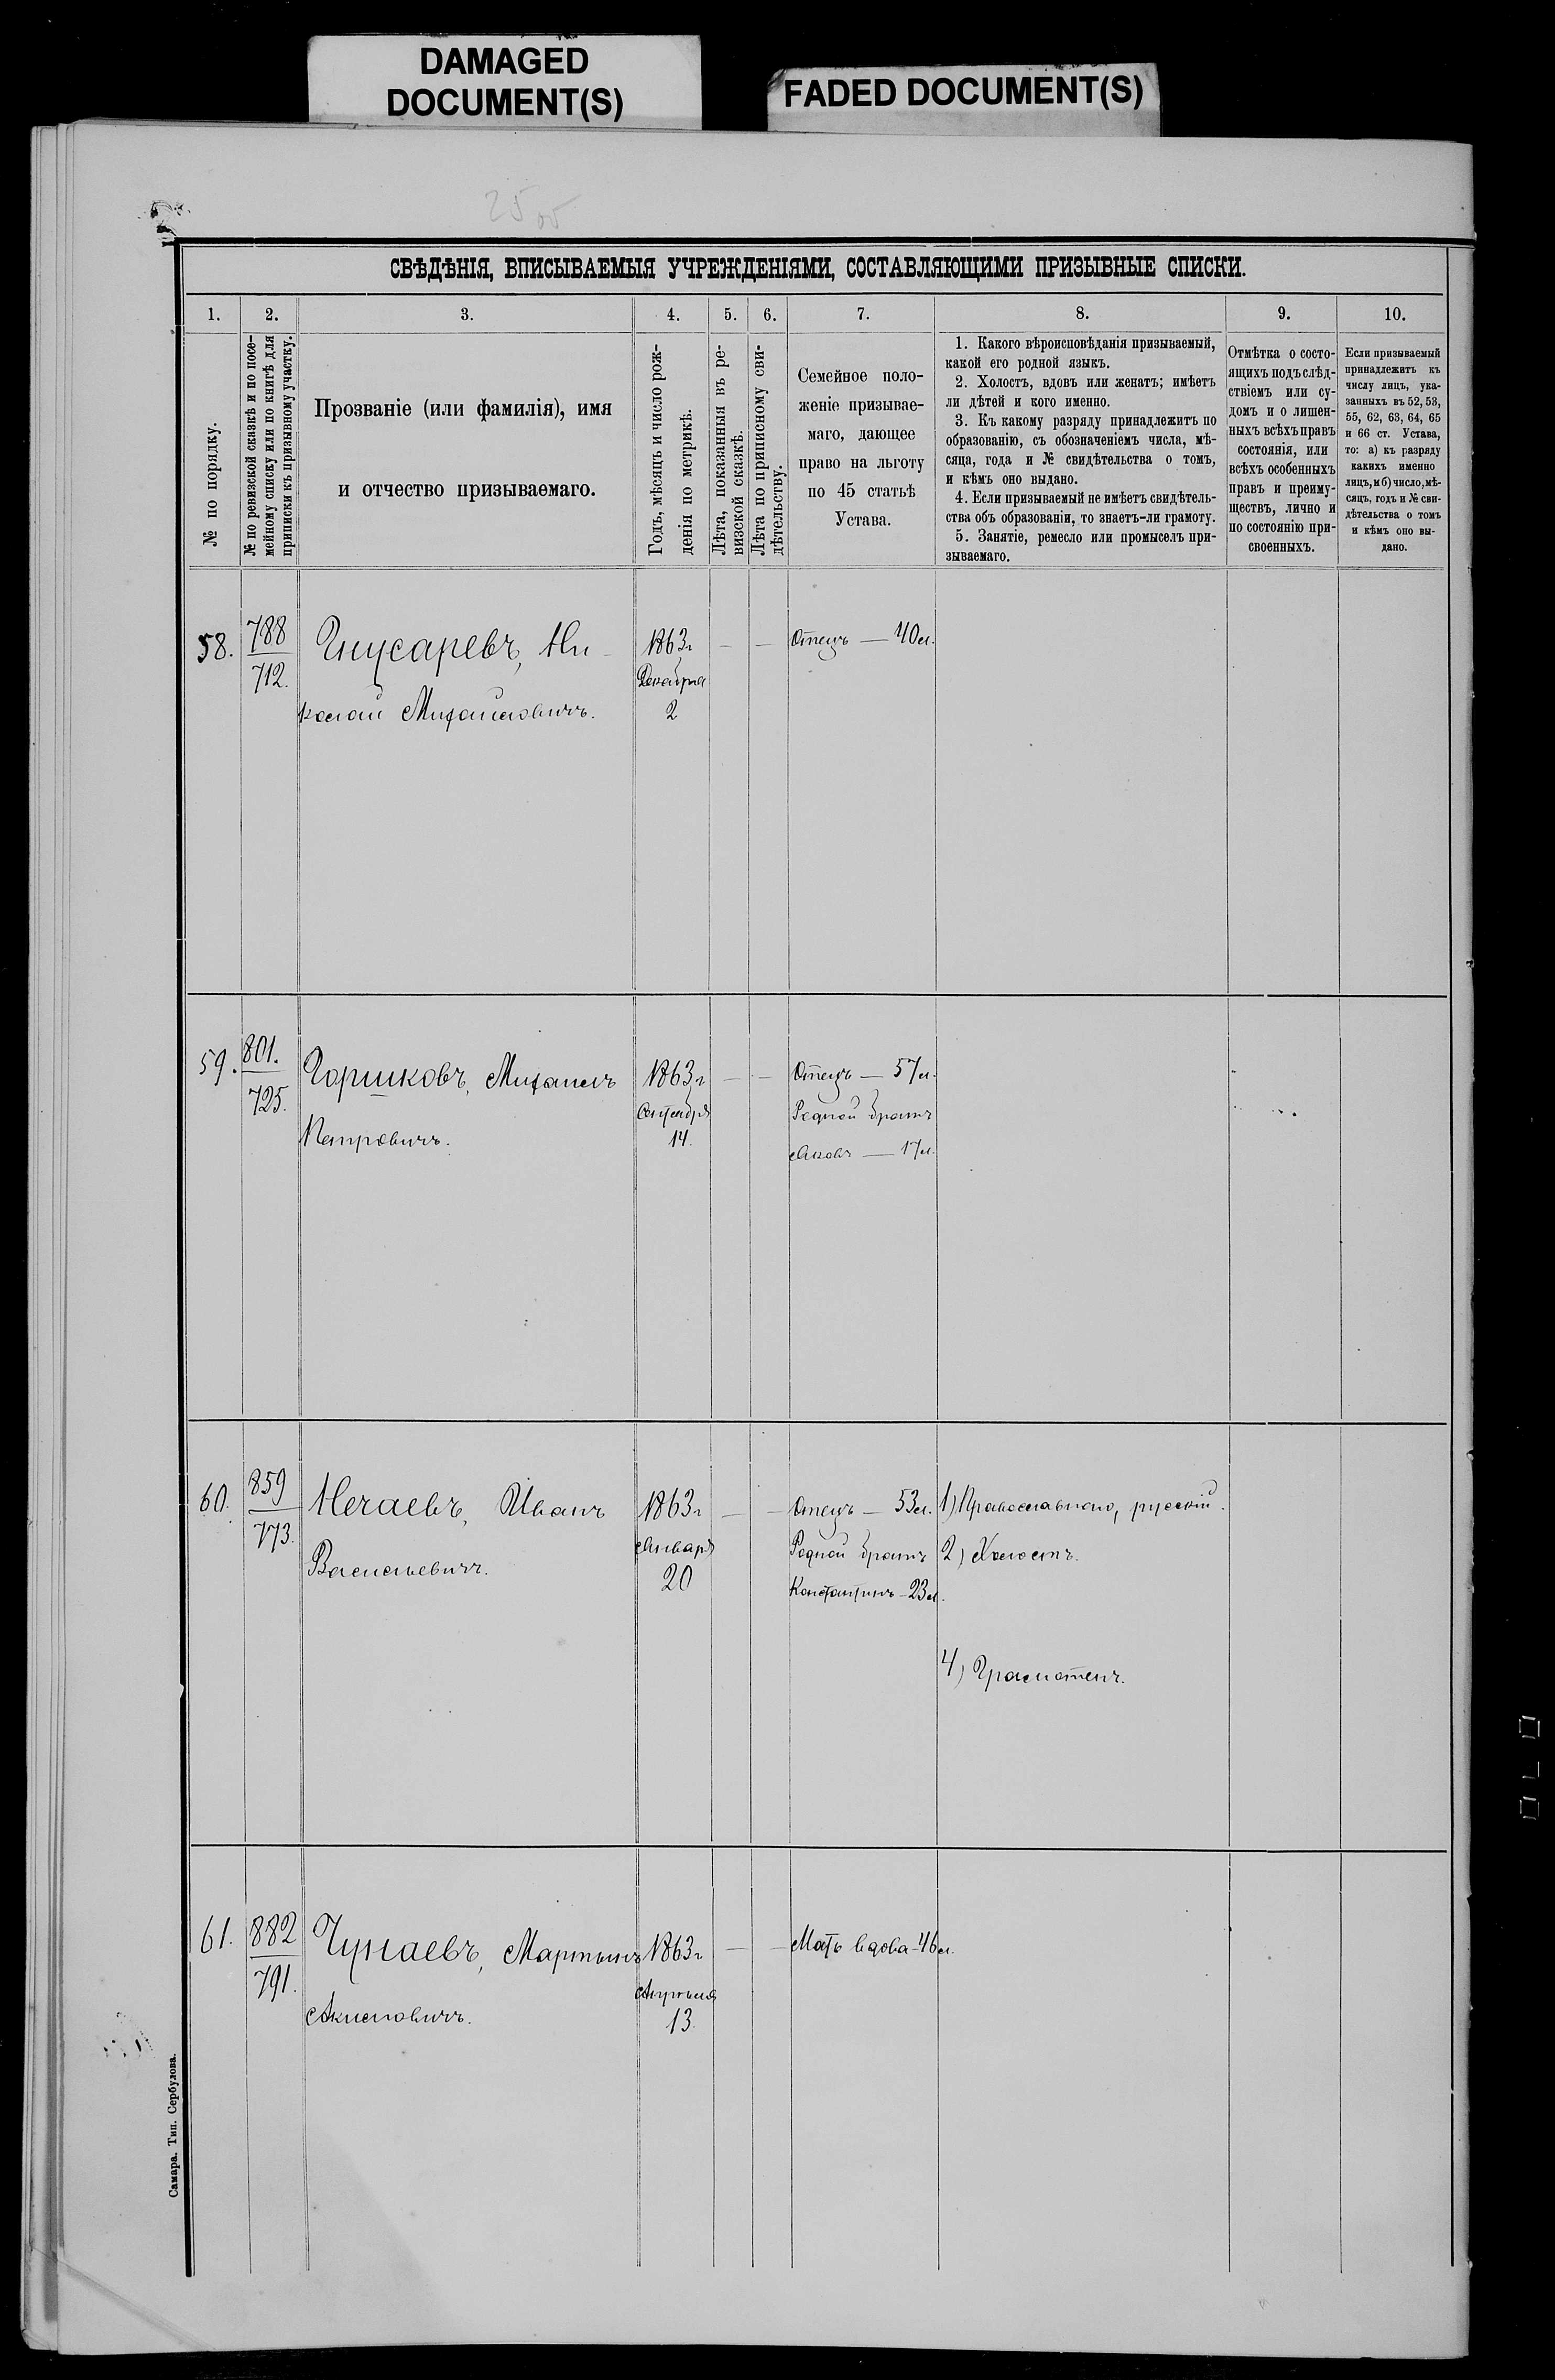 DAMAGED
DOCUMENT(S)
FADED DOCUMENT(S)
СВѢДѢНІЯ, ВПИСЫВАЕМЫЯ УЧРЕЖДЕНІЯМИ, СОСТАВЛЯЮЩИМИ ПРИЗЫВНЫЕ СПИСКИ.
1. 2. 3. 4. 5. 6. 7. 8. 9. 10.
№ по порядку.
№ по ревизской сказкѣ и по посе-
мейному списку или по книгѣ для
приписки къ призывному участку.
Прозваніе (или фамилія), имя
и отчество призываемаго.
Годъ, мѣсяцъ и число рож-
денія по метрикѣ.
Лѣта, показанныя въ ре-
визской сказкѣ.
Лѣта по приписному сви-
дѣтельству.
Семейное поло-
женіе призывае-
маго, дающее
право на льготу
по 45 статьѣ
Устава.
1. Какого вѣроисповѣданія призываемый,
какой его родной языкъ.
2. Холостъ, вдовъ или женатъ; имѣетъ
ли дѣтей и кого именно.
3. Къ какому разряду принадлежитъ по
образованію, съ обозначеніемъ числа, мѣ-
сяца, года и № свидѣтельства о томъ,
и кѣмъ оно выдано.
4. Если призываемый не имѣетъ свидѣтель-
ства объ образованіи, то знаетъ-ли грамоту.
5. Занятіе, ремесло или промыселъ при-
зываемаго.
Отмѣтка о состо-
ящихъ подъ слѣд-
ствіемъ или су-
домъ и о лишен-
ныхъ всѣхъ правъ
состоянія, или
всѣхъ особенныхъ
правъ и преиму-
ществъ, лично и
по состоянію при-
своенныхъ.
Если призываемый
принадлежитъ къ
числу лицъ, ука-
занныхъ въ 52, 53,
55, 62, 63, 64, 65
и 66 ст. Устава,
то: а) къ разряду
какихъ именно
лицъ, и б) число, мѣ-
сяцъ, годъ и № сви-
дѣтельства о томъ
и кѣмъ оно вы-
дано.
58. 788 Гнусаревъ, Ни- 1863 г — — Отецъ — 40 л.
712. Декабря
колай Михайловичъ. 2
59. 801. Горшковъ, Михаилъ 1863 г — — Отецъ — 57 л.
725. Сентября Родной братъ
Петровичъ. 14. Яковъ — 17 л.
60. 859 Нечаевъ, Иванъ 1863 г — — Отецъ — 53 л. 1) Православнаго, русскій.
773. Января Родной братъ 2) Холостъ.
Васильевичъ. 20 Константинъ - 23 л.
4) Грамотенъ.
61. 882 Чунаевъ, Мартынъ 1863 г — — Мать вдова - 46 л.
791. Апрѣля
Акимовичъ. 13.
Самара. Тип. Сербулова.